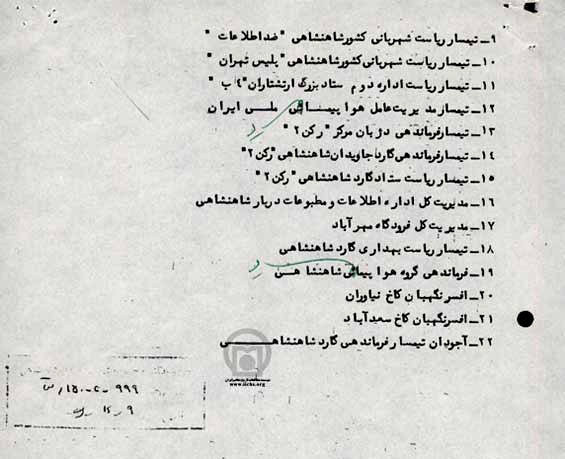 ۹ـ تیمسار ریاست شهربانی کشور شاهنشاهی "ضد اطلاعات"
۱۰ـ تیمسار ریاست شهربانی کشور شاهنشاهی "پلیس تهران"
۱۱ـ تیمسار ریاست اداره دوم ستاد بزرگ ارتشتاران "۴ ب"
۱۲ـ تیمسار مدیریت عامل هواپیمائی ملی ایران
۱۳ـ تیمسار فرماندهی دژبان مرکز "رکن ۲"
۱۴ـ تیمسار فرماندهی گارد جاویدان شاهنشاهی "رکن ۲"
۱۵ـ تیمسار ریاست ستاد گارد شاهنشاهی "رکن ۲"
۱۶ـ مدیریت کل اداره اطلاعات و مطبوعات دربار شاهنشاهی
۱۷ـ مدیریت کل فرودگاه مهرآباد
۱۸ـ تیمسار ریاست بهداری گارد شاهنشاهی
۱۹ـ فرماندهی گروه هواپیمائی شاهنشاهی
۲۰ـ افسر نگهبان کاخ نیاوران
۲۱ـ افسر نگهبان کاخ سعدآباد
۲۲ـ آجودان تیمسار فرماندهی گارد شاهنشاهی
www.iichs.org